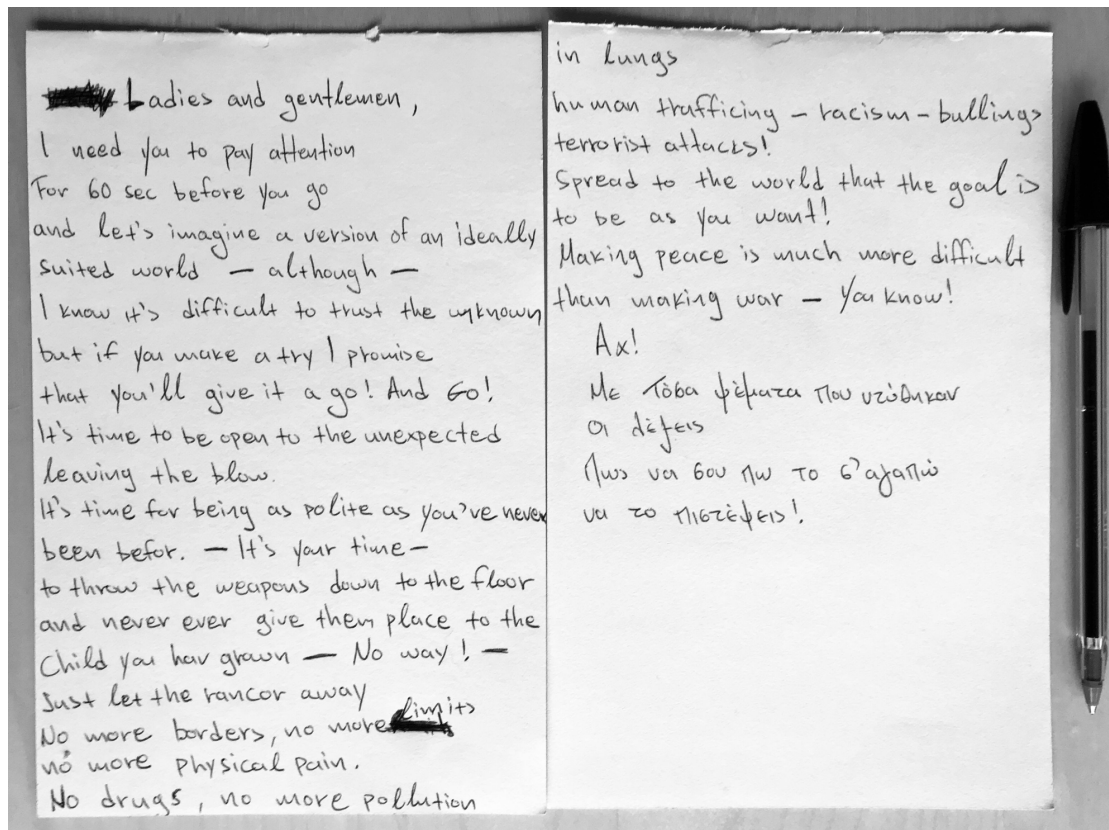 Ladies and gentlemen,
I need you to pay attention
For 60 sec before you go
and let's imagine a version of an ideally
suited world — although —
I know it's difficult to trust the unknown
but if you make a try I promise
that you'll give it a go! And Go!
It's time to be open to the unexpected
leaving the blow.
It's time for being as polite as you've never
been befor. — It's your time —
to throw the weapons down to the floor
and never ever give them place to the
Child you hav grown — No way! —
Just let the rancor away
No more borders, no more limits
no more physical pain.
No drugs, no more pollution
in lungs
human trafficing – racism – bullings
terrorist attacks!
Spread to the world that the goal is
to be as you want!
Making peace is much more difficult
than making war – You know!
Αχ!
Με τόσα ψέματα που ντύθηκαν
οι λέξεις
Πως να σου πω το σ'αγαπώ
να το πιστέψεις!